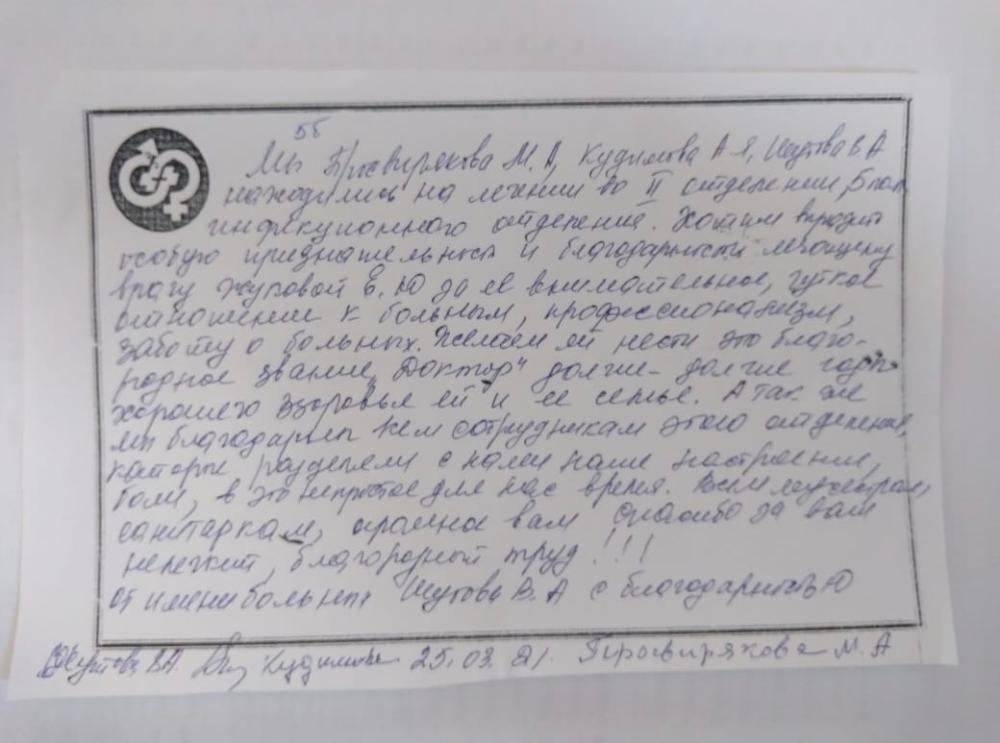 55
Мы Просвирякова М.А, Кудимова А Я, Шутова В.А
находились на лечении во II отделении, 5 пал
инфекционного отделения. Хотим выразить
особую признательность и благодарность лечащему
врачу Жуковой Е.Ю за её внимательное, чуткое
отношение к больным, профессионализм,
заботу о больных. Желаем ей нести это благо-
родное звание „Доктор" долгие-долгие годы
хорошего здоровья ей и ее семье. А так же
мы благодарны всем сотрудникам этого отделения,
которые разделели с нами наше настроение,
боли, в это непростое для нас время. Всем медсестрам,
санитаркам, огромное вам спасибо за ваш
нелегкий, благородный труд!!!
от имени больных Шутова В.А с благодарностью
Шутова В.А. Кудимова 25.03.21. Просвирякова М.А